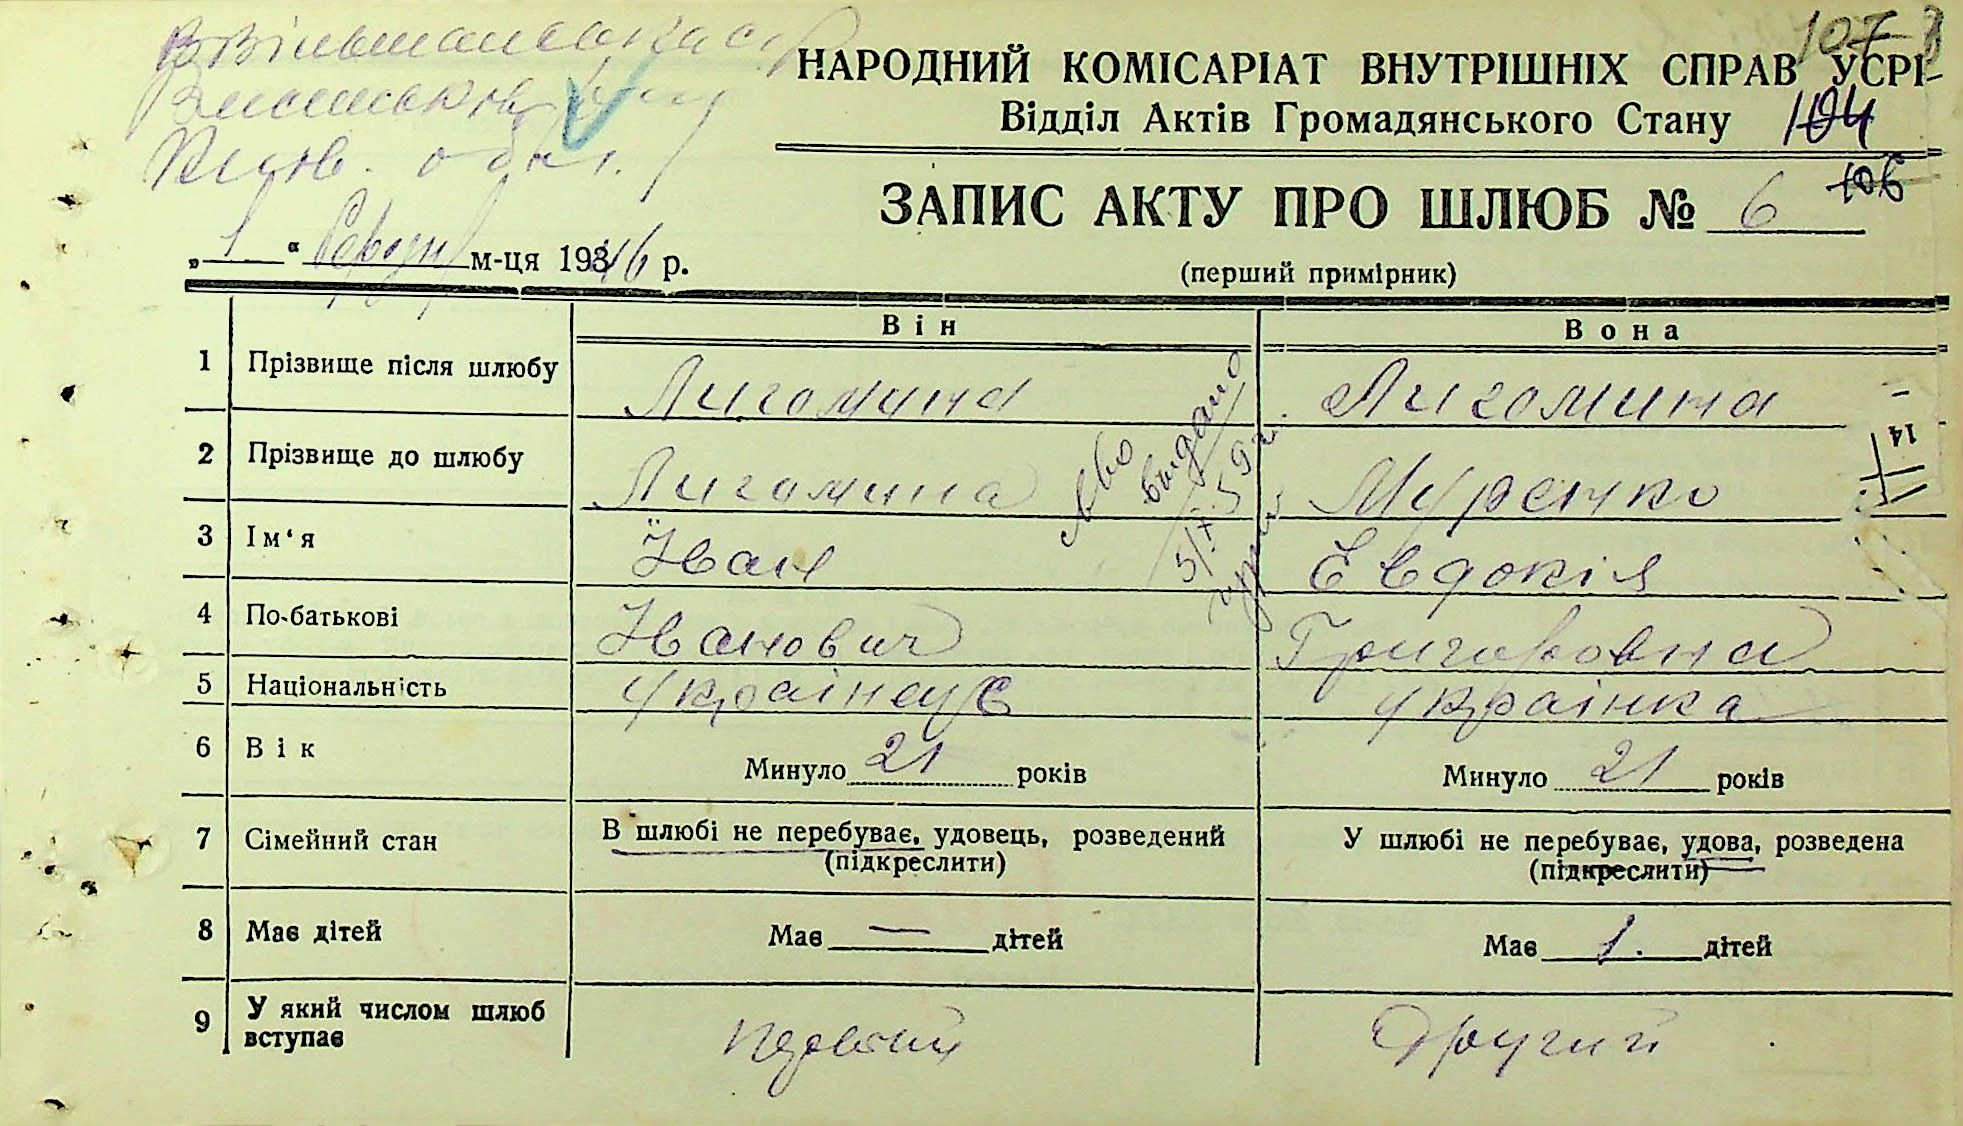 107
НАРОДНИЙ КОМІСАРІАТ ВНУТРІШНІХ СПРАВ УСРР
Відділ Актів Громадянського Стану 104
обл.
ЗАПИС АКТУ ПРО ШЛЮБ № 6 106
„ 1 “ м-ця 1946 р.
(перший примірник)
Він Вона
1 Прізвище після шлюбу Лигомина Лигомина
2 Прізвище до шлюбу Лигомина Муренко
14
видано
3 Ім‘я Іван Євдокія
4 По-батькові Іванович Григоровна
5 Національність українець українка
6 Вік Минуло 21 років Минуло 21 років
7 Сімейний стан В шлюбі не перебуває, удовець, розведений У шлюбі не перебуває, удова, розведена
(підкреслити) (підкреслити)
8 Має дітей Має — дітей Має 1. дітей
9 У який числом шлюб вступає Первий Другий